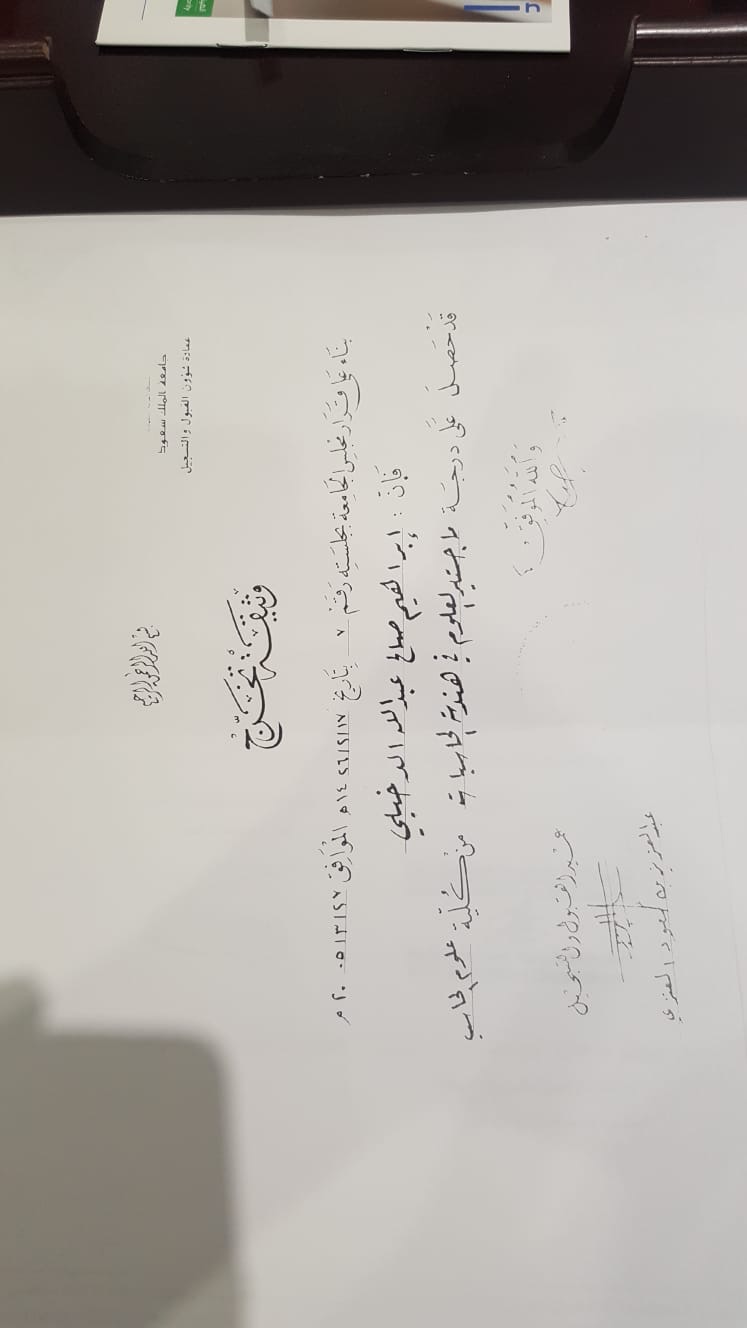 جامعة الملك سعود
عمادة شؤون القبول والتسجيل
بسم الله الرحمن الرحيم
وثيقة تخرّج
بناء على قرار مجلس الجامعة بجلسته رقم ٧ بتاريخ ١٤٢٦/٢/١٧ه الموافق ٢٠٠٥/٣/٢٧م
فإن : إبراهيم صالح عبدالله الدخيلي
قد حصل على درجة ماجستير العلوم في هندسة الحاسبات من كلية علوم الحاسب
والله الموفق ،
عميد القبول والتسجيل
عبدالعزيز بن سعود العنزي